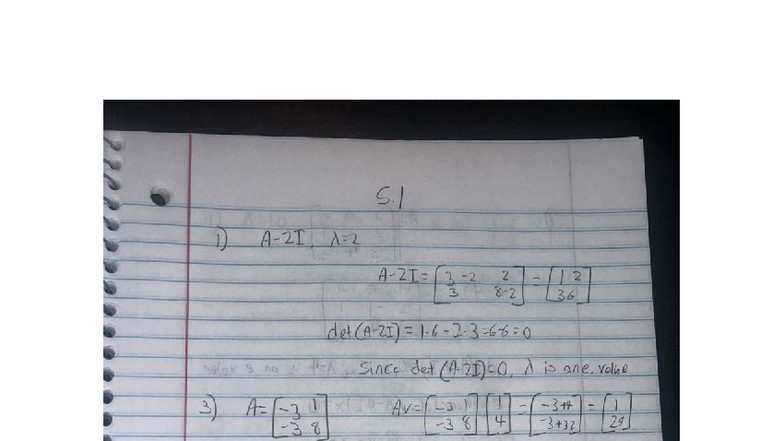 5.1
1) A-2I, λ=2
A-2I = [3-2 2; 3 8-2] = [1 2; 3 6]
det(A-2I) = 1·6 - 2·3 = 6-6 = 0
Since det(A-2I)=0, λ is an e. value
3) A = [-3 1; -3 8] Av = [-3 1; -3 8] [1; 4] = [-3+4; -3+32] = [1; 29]